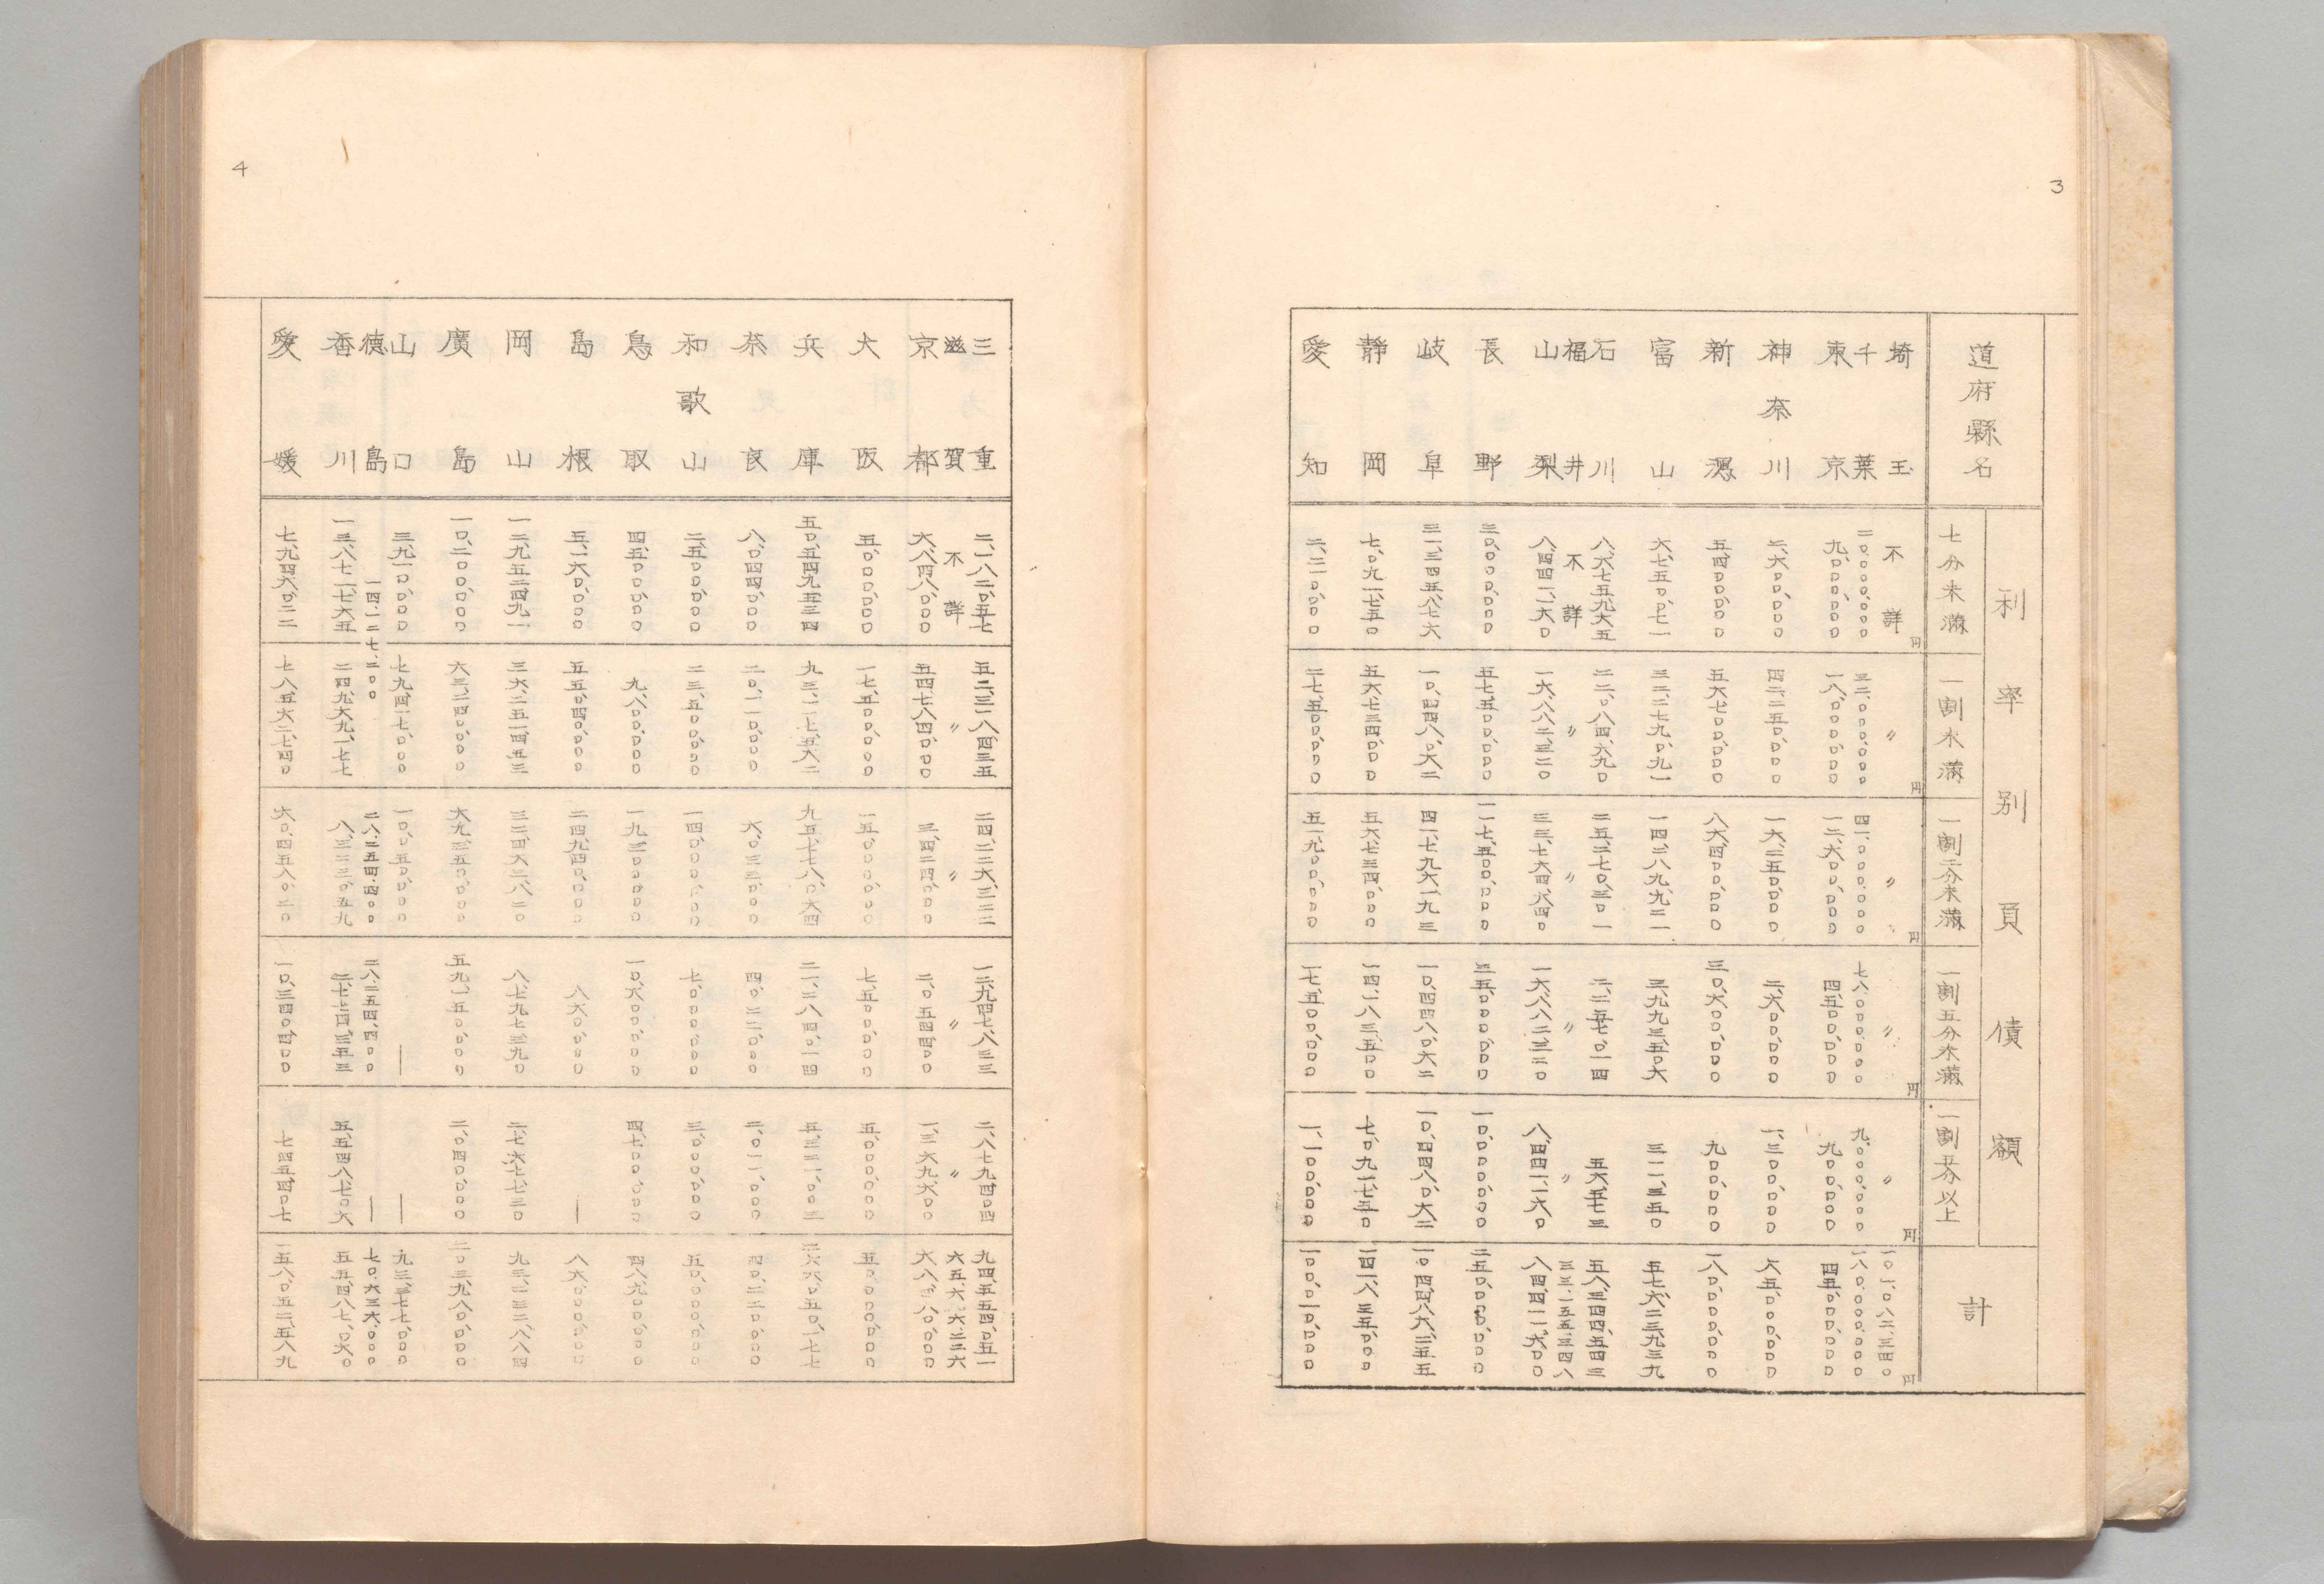 3
道府縣名 利率別負債額 計
七分未滿 一割未滿 一割二分未滿 一割五分未滿 一割五分以上
円 円 円 円 円 円
埼玉 不詳 〃 〃 〃 〃 一〇一、〇八二、三四〇
千葉 二〇、〇〇〇、〇〇〇 三二、〇〇〇、〇〇〇 四一、〇〇〇、〇〇〇 七八、〇〇〇、〇〇〇 九、〇〇〇、〇〇〇 一八〇、〇〇〇、〇〇〇
東京 九、〇〇〇、〇〇〇 一八、〇〇〇、〇〇〇 一二、六〇〇、〇〇〇 四、五〇〇、〇〇〇 九〇〇、〇〇〇 四五、〇〇〇、〇〇〇
神奈川 二、六〇〇、〇〇〇 四二、二五〇、〇〇〇 一六、二五〇、〇〇〇 二、六〇〇、〇〇〇 一、三〇〇、〇〇〇 六五、〇〇〇、〇〇〇
新潟 五、四〇〇、〇〇〇 五六、七〇〇、〇〇〇 八六、四〇〇、〇〇〇 三〇、六〇〇、〇〇〇 九〇〇、〇〇〇 一八〇、〇〇〇、〇〇〇
富山 六、七五〇、〇七一 三二、二七九、〇九一 一四、二八九、九二一 三、九九三、五〇六 三一一、三五〇 五七、六二三、九三九
石川 八、六七五、九六五 二二、〇八四、六九〇 二五、二七〇、三〇一 二、二五七、〇一四 五六、五七三 五八、三四四、五四三
福井 不詳 〃 〃 〃 〃 三三、一五五、三四八
山梨 八、四四一、一六〇 一六、八八二、三二〇 三三、七六四、六四〇 一六、八八二、三二〇 八、四四一、一六〇 八四、四一一、六〇〇
長野 三〇、〇〇〇、〇〇〇 五七、五〇〇、〇〇〇 一一七、五〇〇、〇〇〇 三五、〇〇〇、〇〇〇 一〇、〇〇〇、〇〇〇 二五〇、〇〇〇、〇〇〇
岐阜 三一、三四五、八七六 一〇、四四八、〇六二 四一、七九六、一九三 一〇、四四八、〇六二 一〇、四四八、〇六二 一〇四、四八六、二五五
静岡 七、〇九一、七五〇 五六、七三四、〇〇〇 五六、七三四、〇〇〇 一四、一八三、五〇〇 七、〇九一、七五〇 一四一、八三五、〇〇〇
愛知 二七、五〇〇、〇〇〇 五一、九〇〇、〇〇〇 一七、五〇〇、〇〇〇 一、一〇〇、〇〇〇
4
三重 二、一八二、〇五七 五二、三一八、四三五 二四、二二六、三二二 一二、九四七、八三三 二、八七九、四〇四 九四、五五四、〇五一
滋賀 不詳 〃 〃 〃 〃 六五、六六六、二二六
京都 六、八四八、〇〇〇 五四、七八四、〇〇〇 三、四二四、〇〇〇 二、〇五四、四〇〇 一、三六九、六〇〇 六八、四八〇、〇〇〇
大阪 五、〇〇〇、〇〇〇 一七、五〇〇、〇〇〇 一五、〇〇〇、〇〇〇 七、五〇〇、〇〇〇 五、〇〇〇、〇〇〇 五〇、〇〇〇、〇〇〇
兵庫 五〇、五四九、五三四 九三、一一七、五六二 九五、七七八、〇六四 二一、二八四、〇一四 五、三二一、〇〇三 二六六、〇五〇、一七七
奈良 八、〇四四、〇〇〇 二〇、一一〇、〇〇〇 六、〇三三、〇〇〇 四、〇二二、〇〇〇 二、〇一一、〇〇〇 四〇、二二〇、〇〇〇
和歌山 二、五〇〇、〇〇〇 二三、五〇〇、〇〇〇 一四、〇〇〇、〇〇〇 七、〇〇〇、〇〇〇 三、〇〇〇、〇〇〇 五〇、〇〇〇、〇〇〇
鳥取 四、五〇〇、〇〇〇 九、八〇〇、〇〇〇 一九、三〇〇、〇〇〇 一〇、六〇〇、〇〇〇 四、七〇〇、〇〇〇 四八、九〇〇、〇〇〇
島根 五、一六〇、〇〇〇 五五、〇四〇、〇〇〇 二四、九四〇、〇〇〇 八六〇、〇〇〇 — 八六、〇〇〇、〇〇〇
岡山 一二、九五二、四九一 三六、二五一、四五三 三二、四六三、八二〇 八、七九七、三九〇 二、七六七、七二〇 九三、二三二、八八四
廣島 一〇、二〇〇、〇〇〇 六三、二四〇、〇〇〇 六九、三五〇、〇〇〇 五九、一五〇、〇〇〇 二、〇四〇、〇〇〇 二〇三、九八〇、〇〇〇
山口 三、九一〇、〇〇〇 七九、四一七、〇〇〇 一〇、〇五〇、〇〇〇 — — 九三、三七七、〇〇〇
徳島 一四、一二七、二〇〇 二八、二五四、四〇〇 二八、二五四、四〇〇 — 七〇、六三六、〇〇〇
香川 一三、八七一、七六五 二四、九六九、一七七 八、三二三、〇五九 二、七七四、三五三 五、五四八、七〇六 五五、四八七、〇六〇
愛媛 七、九四六、〇二二 七八、五六二、七四〇 六〇、四五八、〇二〇 一〇、三四〇、四〇〇 七四五、四〇七 一五八、〇五二、五八九